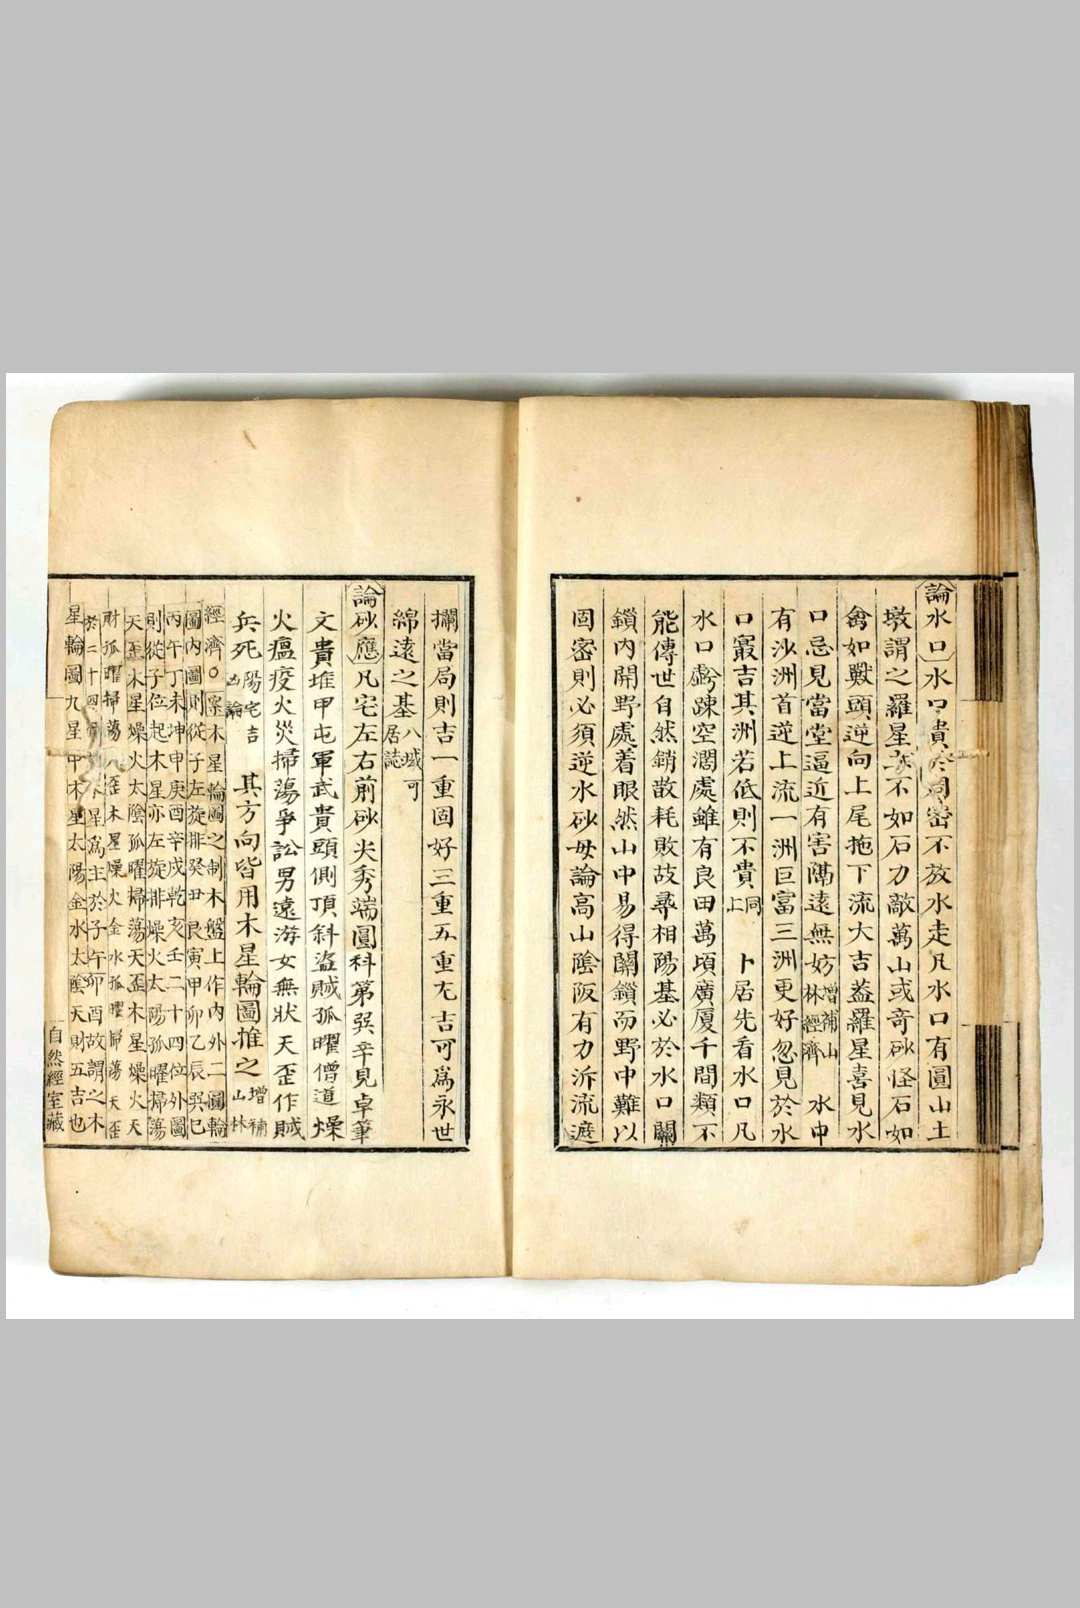 論水口水口貴密不放水走凡水口有圓山土
墩謂之羅星不如石刀敵萬山或奇砂怪石如
禽如獸頭逆向上尾拖下流大吉葢羅星喜見水
口忌見當堂逼近有害隔遠無妨增補山林經濟 水中
有沙洲首逆上流一洲巨富三洲更好忽見於水
口叢吉其洲若低則不貴同上 卜居先看水口凡
水口虧踈空濶處雖有良田萬頃廣厦千間類不
能傳世自然銷散耗敗故尋相陽基必於水口關
鎖內開野處着眼然山中易得關鎖而野中難以
固密則必須逆水砂毋論高山陰阪有力泝流遮
攔當局則吉一重固好三重五重尤吉可爲永世
綿遠之基八域可居誌
論砂應凡宅左右前砂尖秀端圓科第巽辛見卓筆
文貴堆甲屯軍武貴頭側頂斜盜賊孤曜僧道燥
火瘟疫火災掃蕩爭訟男遠游女無狀天歪作賊
兵死陽宅吉凶論 其方向皆用木星輪圖推之增補山林
經濟○案木星輪圖之制木盤上作內外二圓輪
圖內圖則從子左旋排癸丑艮寅甲卯乙辰巽巳
丙午丁未坤申庚酉辛戌乾亥壬二十四位外圖
則從子位起木星亦左旋排燥火太陽孤曜掃蕩
天歪木星燥火太陰孤曜掃蕩天歪木星燥火天
財孤曜掃蕩天歪木星燥火金水孤曜掃蕩天歪
於二十四星爲主於子午卯酉故謂之木
星輪圖九星中木星太陽金水太陰天財五吉也
自然經室藏